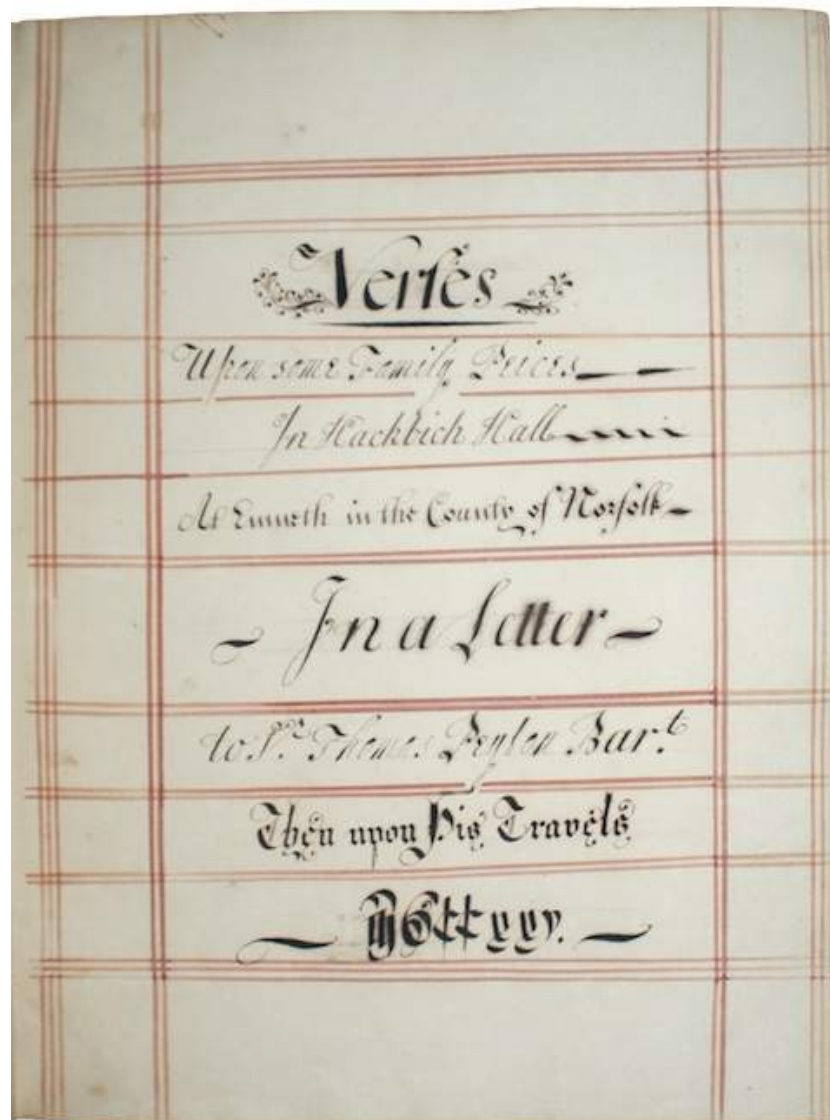 Verses
Upon some Family Peices
In Hackbich Hall
At Emneth in the County of Norfolk
In a Letter
to Sr. Thomas Peyton Bar.t
Then upon His Travels